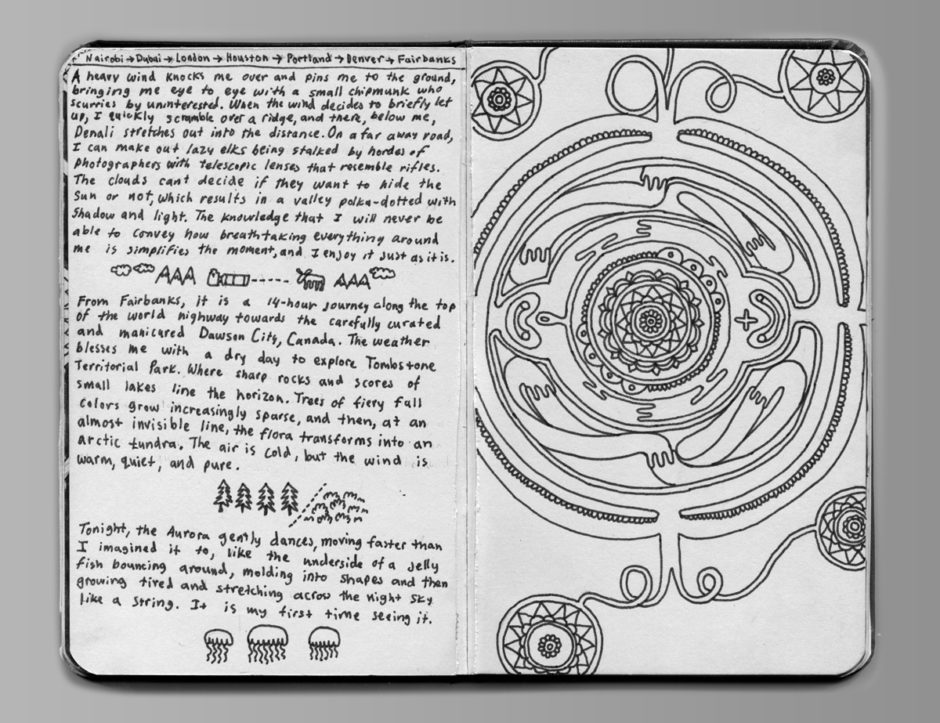 Nairobi → Dubai → London → Houston → Portland → Denver → Fairbanks
A heavy wind knocks me over and pins me to the ground,
bringing me eye to eye with a small chipmunk who
scurries by uninterested. When the wind decides to briefly let
up, I quickly scramble over a ridge, and there, below me,
Denali stretches out into the distance. On a far away road,
I can make out lazy elks being stalked by hordes of
photographers with telescopic lenses that resemble rifles.
The clouds cant decide if they want to hide the
sun or not, which results in a valley polka-dotted with
shadow and light. The knowledge that I will never be
able to convey how breathtaking everything around
me is simplifies the moment, and I enjoy it just as it is.
From Fairbanks, it is a 14-hour journey along the top
of the world highway towards the carefully curated
and manicured Dawson City, Canada. The weather
blesses me with a dry day to explore Tombstone
Territorial Park. Where sharp rocks and scores of
small lakes line the horizon. Trees of fiery fall
colors grow increasingly sparse, and then, at an
almost invisible line, the flora transforms into an
arctic tundra. The air is cold, but the wind is
warm, quiet, and pure.
Tonight, the Aurora gently dances, moving faster than
I imagined it to, like the underside of a jelly
fish bouncing around, molding into shapes and then
growing tired and stretching across the night sky
like a string. It is my first time seeing it.